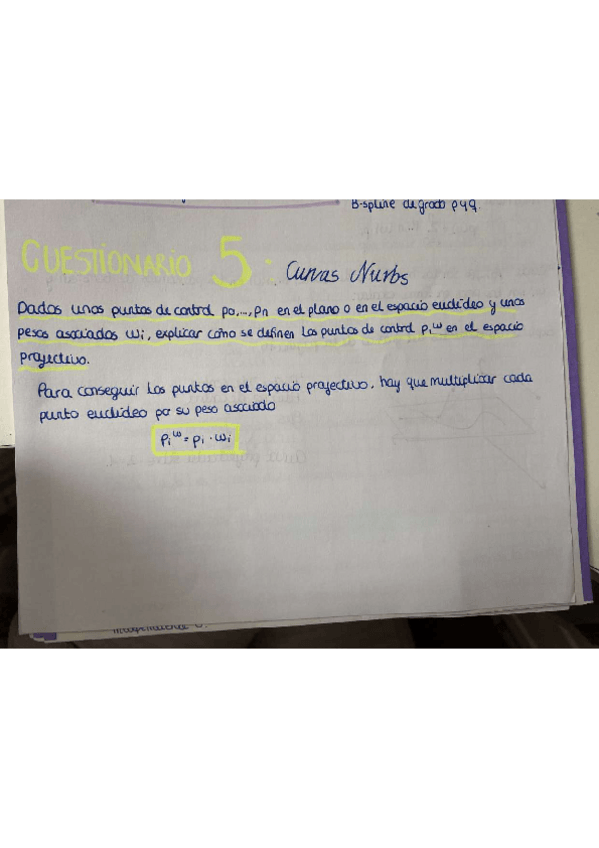 B-spline de grado p y q.
CUESTIONARIO 5: Curvas Nurbs
Dados unos puntos de control p0,...,pn en el plano o en el espacio euclídeo y unos
pesos asociados wi, explicar cómo se definen los puntos de control pi^w en el espacio
proyectivo.
Para conseguir los puntos en el espacio proyectivo, hay que multiplicar cada
punto euclídeo por su peso asociado
pi^w = pi · wi